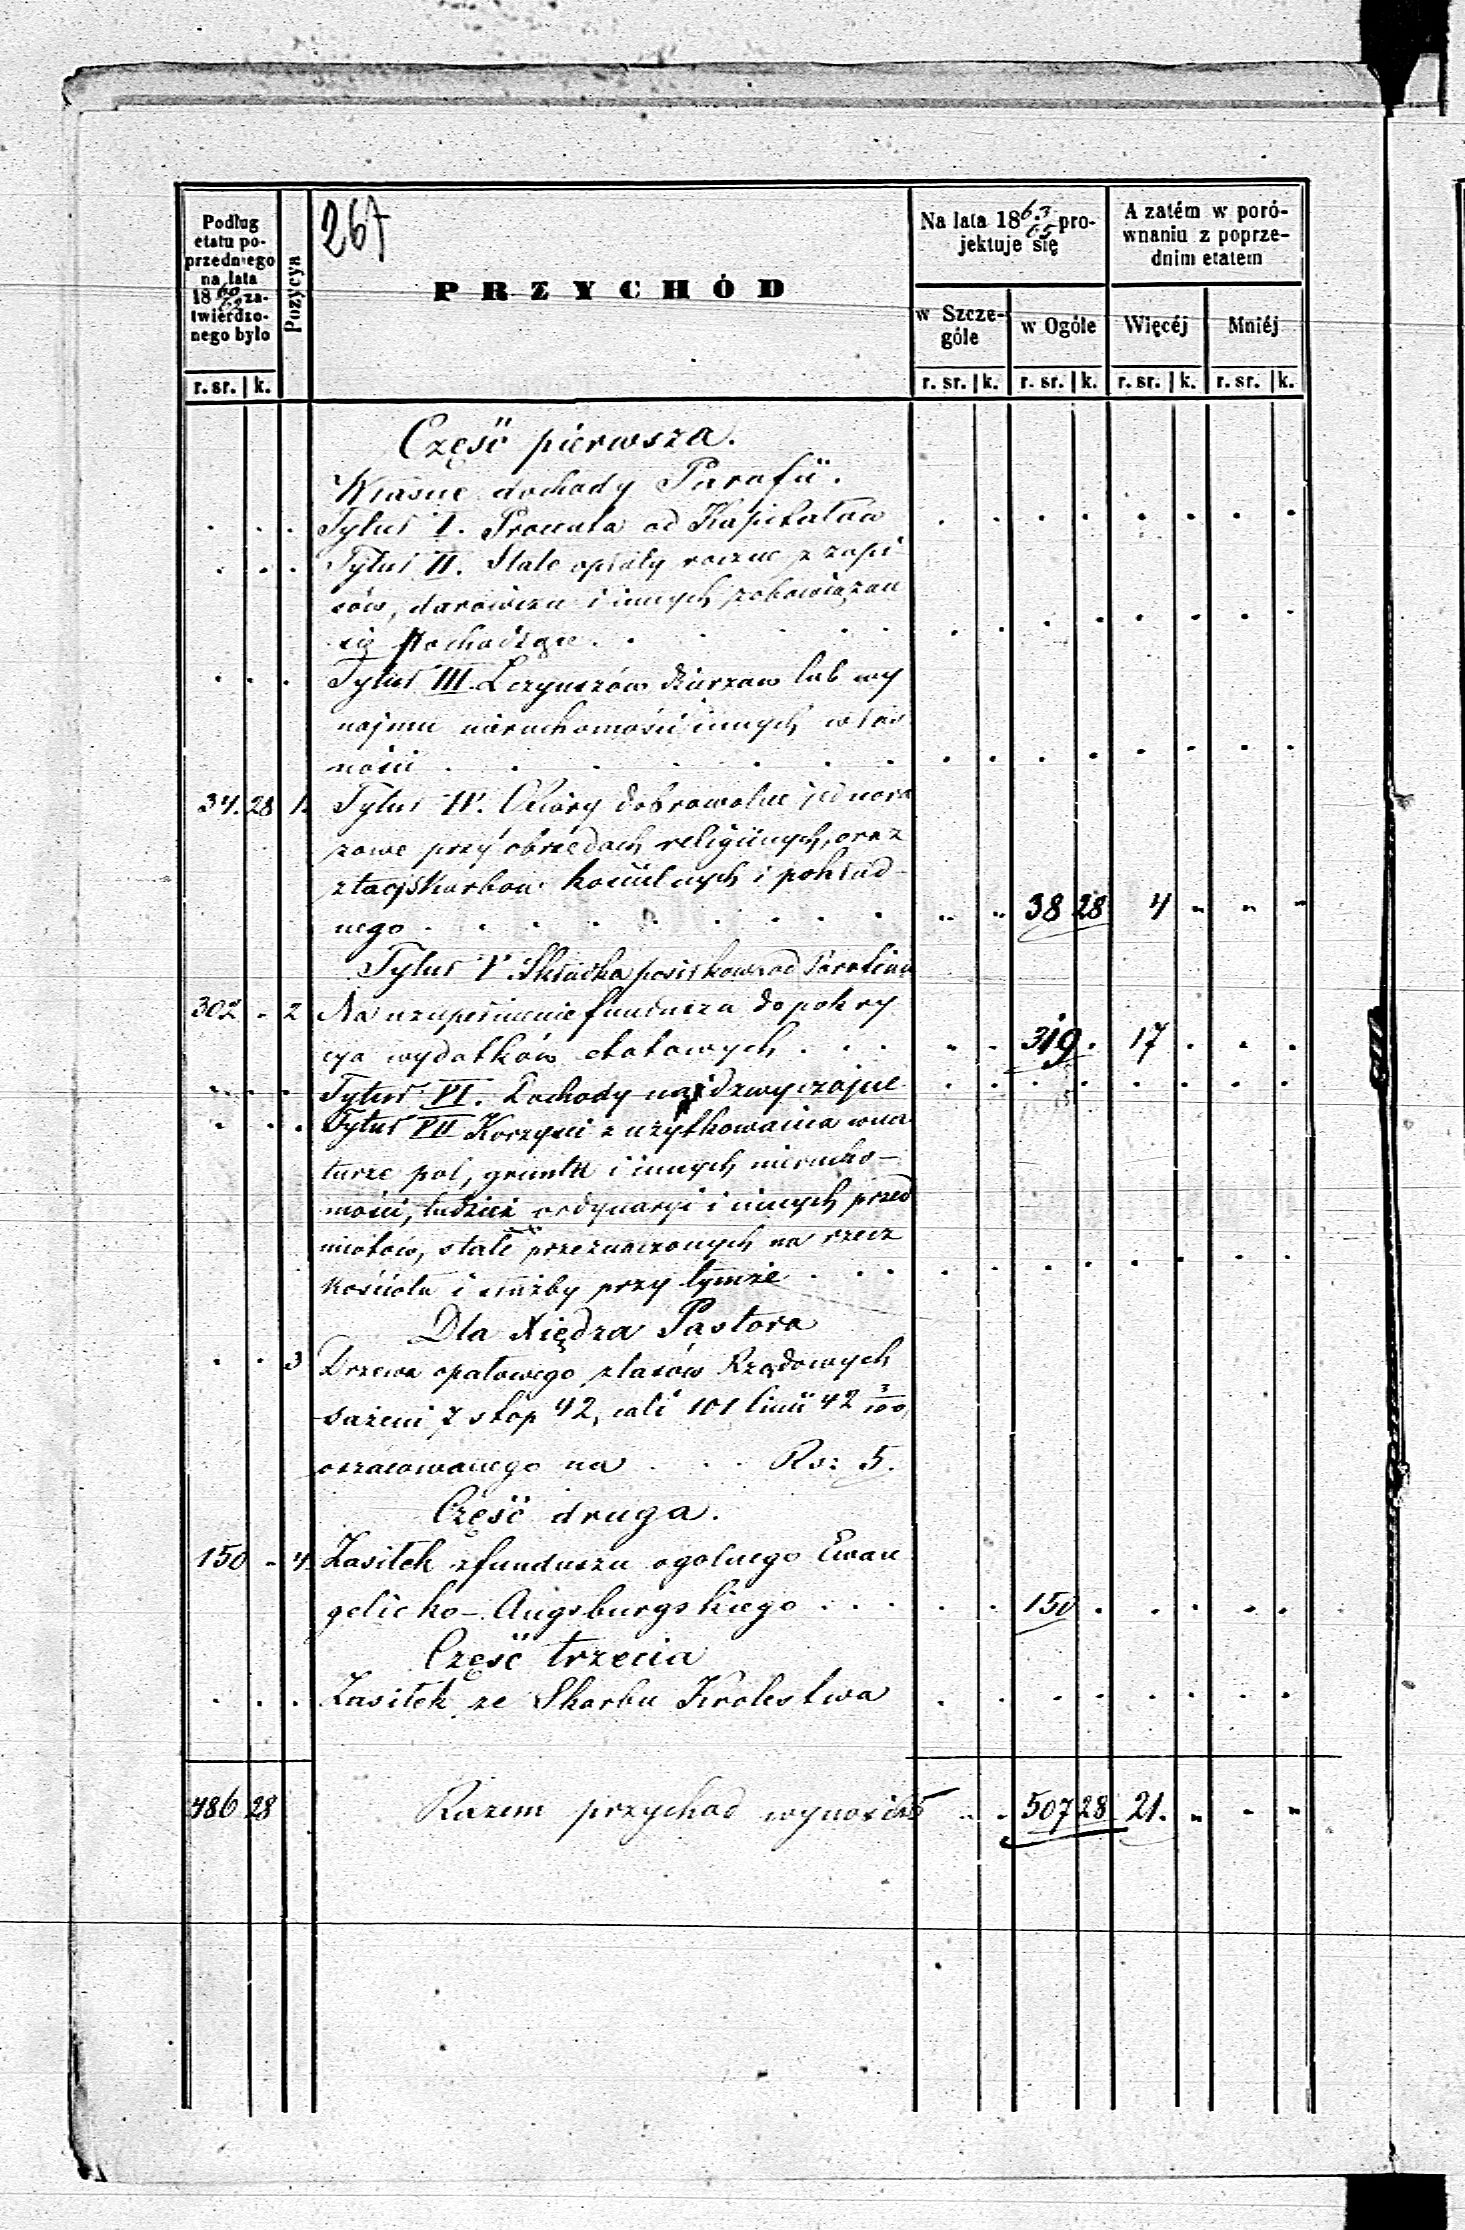 267
Podług etatu poprzedniego na lata 18 60/62 zatwierdzonego było
Pozycya
PRZYCHÓD
Na lata 18 63/65 projektuje się
A zatém w porównaniu z poprzednim etatem
w Szczególe
w Ogóle
Więcéj
Mniéj
r. sr. k. r. sr. k. r. sr. k. r. sr. k. r. sr. k.
Część pierwsza.
Własne dochody Parafii.
Tytuł I. Procenta od Kapitałów
Tytuł II. Stałe opłaty roczne z zapi
sów, darowizn i innych zobowiązań
się pochodzące
Tytuł III. Z czynszów dzierzaw lub wy
najmu nieruchomości innych włas
ności
34. 28 1. Tytuł IV. Ofiary dobrowolne jednora
zowe przy obrzędach religiinych, oraz
z tac, skarbon kościelnych i pokład
nego 38 28 4 - - -
Tytuł V. Składka posiłkowa od Parafian
302 - 2 Na uzupełnienie funduszu do pokry
cya wydatków etatowych 319 . 17
Tytuł VI. Dochody nadzwyczajne
Tytuł VII Korzyści z użytkowania w na
turze pol, gruntu i innych nierucho-
mości, tudzież ordynaryi i innych przed
miotów, stale przeznaczonych na rzecz
Kościoła i służby przy tymże
Dla Xiędza Pastora
3 Drzewa opałowego z lasów Rządowych
sążeni 7 stop 42, cali 101 linii 42 3/100,
oszacowanego na Rs: 5.
Część druga.
150 - 4. Zasiłek z funduszu ogolnego Ewan
gelicko-Augsburgskiego 150
Część trzecia
Zasiłek ze Skarbu Krolestwa
486 28 Razem przychod wynosi 507 28 21. - - -